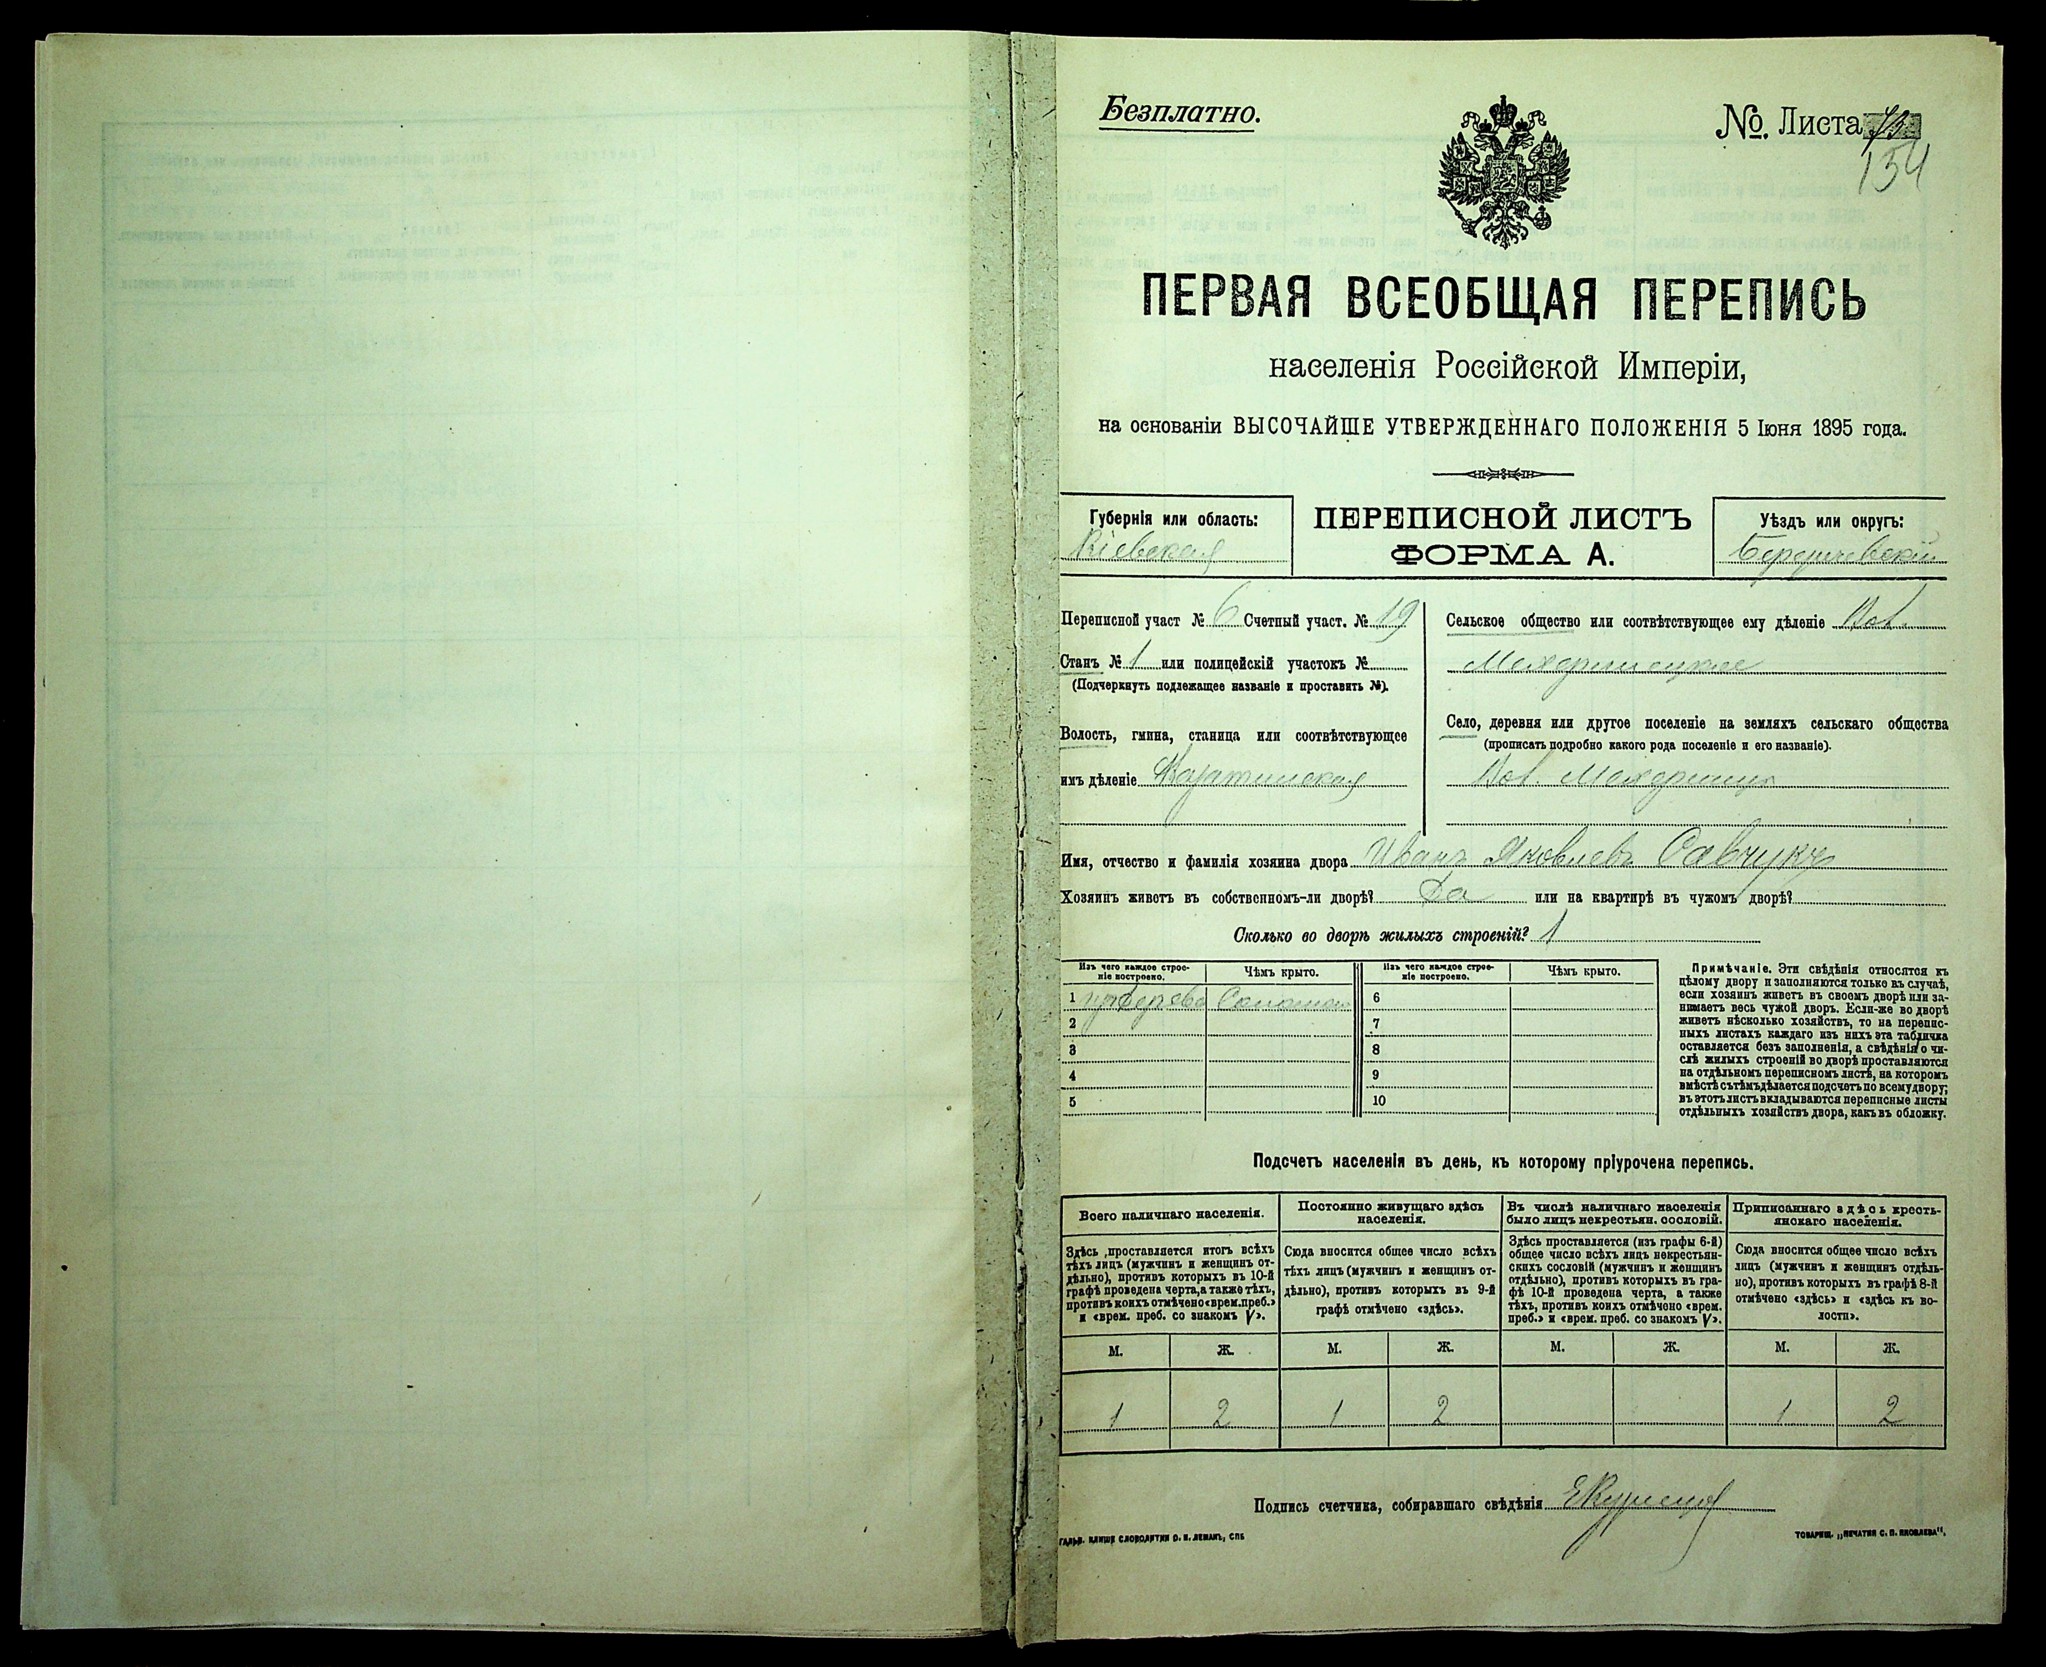 Безплатно.
№. Листа
154
ПЕРВАЯ ВСЕОБЩАЯ ПЕРЕПИСЬ
населенія Россійской Имперіи,
на основаніи ВЫСОЧАЙШЕ УТВЕРЖДЕННАГО ПОЛОЖЕНІЯ 5 Іюня 1895 года.
Губернія или область:
Кіевская
ПЕРЕПИСНОЙ ЛИСТЪ
ФОРМА А.
Уѣздъ или округъ:
Бердичевскій
Переписной участ № 6 Счетный участ. № 19
Станъ № 1 или полицейскій участокъ №
(Подчеркнуть подлежащее названіе и проставить №).
Волость, гмина, станица или соотвѣтствующее
имъ дѣленіе
Сельское общество или соотвѣтствующее ему дѣленіе
Махаринецкое
Село, деревня или другое поселеніе на земляхъ сельскаго общества
(прописать подробно какого рода поселеніе и его названіе).
Махаринцы
Имя, отчество и фамилія хозяина двора Иванъ Яковлевъ Савчукъ
Хозяинъ живетъ въ собственномъ-ли дворѣ? Да или на квартирѣ въ чужомъ дворѣ?
Сколько во дворѣ жилыхъ строеній? 1
Изъ чего каждое строеніе построено.
Чѣмъ крыто.
Изъ чего каждое строеніе построено.
Чѣмъ крыто.
1 дерева Соломою
2
3
4
5
6
7
8
9
10
Примѣчаніе. Эти свѣдѣнія относятся къ
цѣлому двору и заполняются только въ случаѣ,
если хозяинъ живетъ въ своемъ дворѣ или за-
нимаетъ весь чужой дворъ. Если-же во дворѣ
живетъ нѣсколько хозяйствъ, то на перепис-
ныхъ листахъ каждаго изъ нихъ эта табличка
оставляется безъ заполненія, а свѣдѣнія о чи-
слѣ жилыхъ строеній во дворѣ проставляются
на отдѣльномъ переписномъ листѣ, на которомъ
вмѣстѣ съ тѣмъ дѣлается подсчетъ по всему двору;
въ этотъ листъ вкладываются переписные листы
отдѣльныхъ хозяйствъ двора, какъ въ обложку.
Подсчетъ населенія въ день, къ которому пріурочена перепись.
Всего наличнаго населенія.
Здѣсь проставляется итогъ всѣхъ
тѣхъ лицъ (мужчинъ и женщинъ от-
дѣльно), противъ которыхъ въ 10-й
графѣ проведена черта, а также тѣхъ,
противъ коихъ отмѣчено «врем. преб.»
и «врем. преб. со знакомъ V».
Постоянно живущаго здѣсь
населенія.
Сюда вносится общее число всѣхъ
тѣхъ лицъ (мужчинъ и женщинъ от-
дѣльно), противъ которыхъ въ 9-й
графѣ отмѣчено «здѣсь».
Въ числѣ наличнаго населенія
было лицъ некрестьян. сословій.
Здѣсь проставляется (изъ графы 6-й)
общее число всѣхъ лицъ некрестьян-
скихъ сословій (мужчинъ и женщинъ
отдѣльно), противъ которыхъ въ гра-
фѣ 10-й проведена черта, а также
тѣхъ, противъ коихъ отмѣчено «врем.
преб.» и «врем. преб. со знакомъ V».
Приписаннаго здѣсь кресть-
янскаго населенія.
Сюда вносится общее число всѣхъ
лицъ (мужчинъ и женщинъ отдѣль-
но), противъ которыхъ въ графѣ 8-й
отмѣчено «здѣсь» и «здѣсь къ во-
лости».
М. Ж. М. Ж. М. Ж. М. Ж.
1 2 1 2 1 2
Подпись счетчика, собиравшаго свѣдѣнія
ГАЛЬВ. КЛИШЕ СЛОВОЛИТНИ О. И. ЛЕМАНЪ, СПБ
ТОВАРИЩ. „ПЕЧАТНЯ С. П. ЯКОВЛЕВА“.